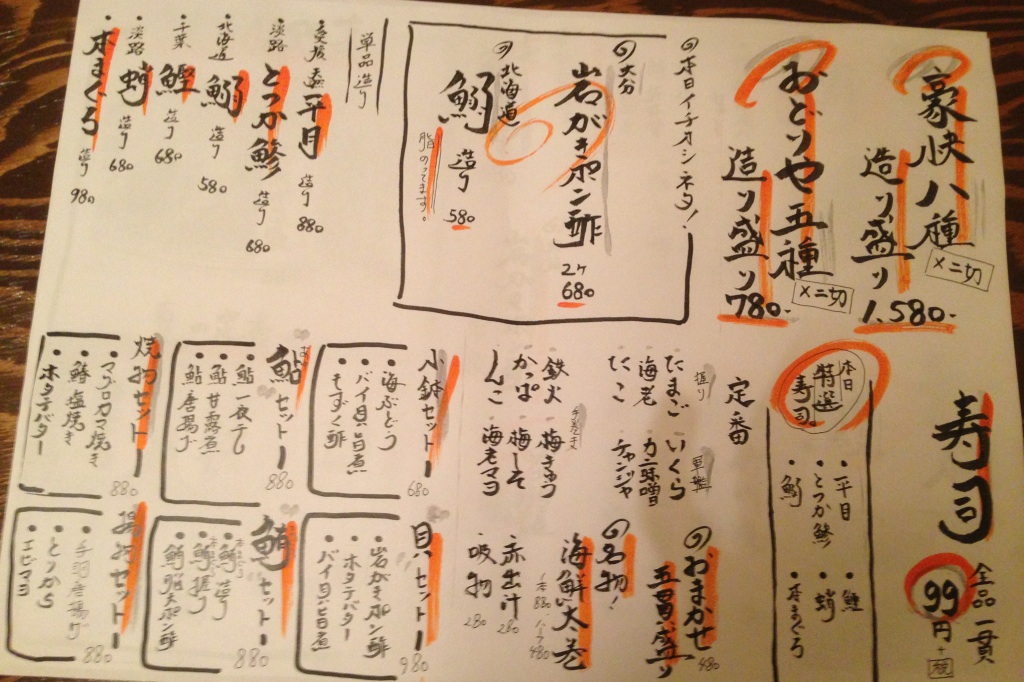 豪快八種
造り盛り
×二切
1,580-
おどりや五種
造り盛り
×二切
780-
本日イチオシネタ!
大分
岩がきポン酢
2ケ
680
北海道
鰯 造り 580
脂のってます。
単品造り
・愛媛 平目 造り 880
・淡路 とつか鯵 造り 680
・北海道 鰯 造り 580
・千葉 鰹 造り 680
・淡路 蛸 造り 680
・本まぐろ 造り 980
寿司
全品一貫
99円+税
本日
特選
寿司
・平目 ・鰹
・とつか鯵 ・蛸
・鰯 ・本まぐろ
定番
握り
軍艦
たまご いくら
海老 カニ味噌
たこ チャンジャ
手巻き
鉄火 梅きゅう
かっぱ 梅しそ
しんこ 海老マヨ
おまかせ
五貫盛り 480
名物!
海鮮大巻
一本 880 ハーフ 480
赤出汁 280
吸物 280
小鉢セット
・海ぶどう
・バイ貝旨煮
・もずく酢
680
鮎セット
・鮎一夜干し
・鮎甘露煮
・鮎唐揚げ
880
焼物セット
・マグロカマ焼き
・鰆塩焼き
・ホタテバター
880
貝セット
・岩がきポン酢
・ホタテバター
・バイ貝旨煮
980
セット
造り
握り
ポン酢
880
揚物セット
・手羽唐揚げ
・とりから
・エビマヨ
880